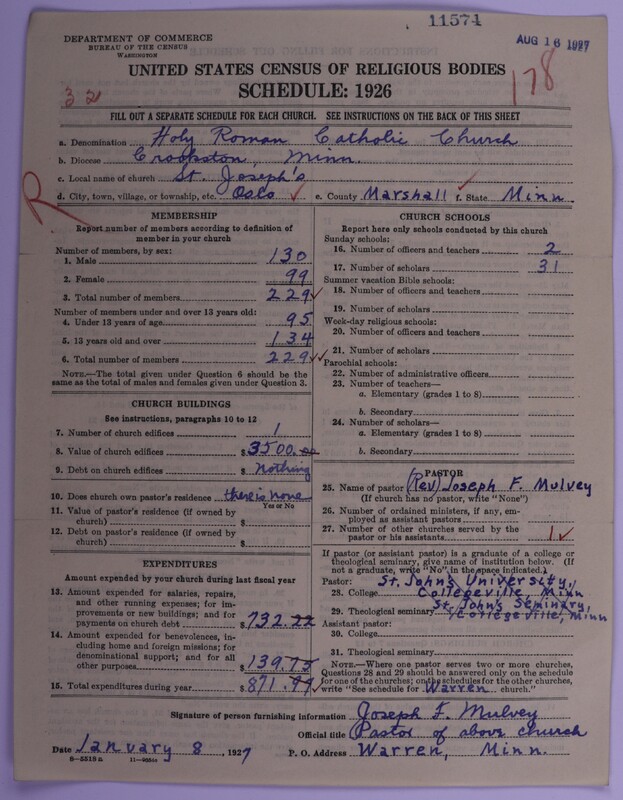 11574
DEPARTMENT OF COMMERCE
BUREAU OF THE CENSUS
WASHINGTON
AUG 16 1927
UNITED STATES CENSUS OF RELIGIOUS BODIES
SCHEDULE: 1926
32
178
FILL OUT A SEPARATE SCHEDULE FOR EACH CHURCH. SEE INSTRUCTIONS ON THE BACK OF THIS SHEET
a. Denomination Holy Roman Catholic Church
b. Diocese Crookston, Minn.
c. Local name of church St. Joseph's
d. City, town, village, or township, etc. Oslo e. County Marshall f. State Minn
R
MEMBERSHIP
Report number of members according to definition of
member in your church
Number of members, by sex:
1. Male 130
2. Female 99
3. Total number of members 229
Number of members under and over 13 years old:
4. Under 13 years of age 95
5. 13 years old and over 134
6. Total number of members 229
NOTE.—The total given under Question 6 should be
the same as the total of males and females given under Question 3.
CHURCH BUILDINGS
See instructions, paragraphs 10 to 12
7. Number of church edifices 1
8. Value of church edifices $ 3500.00
9. Debt on church edifices $ nothing
10. Does church own pastor's residence there is none
Yes or No
11. Value of pastor's residence (if owned by
church) $
12. Debt on pastor's residence (if owned by
church) $
EXPENDITURES
Amount expended by your church during last fiscal year
13. Amount expended for salaries, repairs,
and other running expenses; for im-
provements or new buildings; and for
payments on church debt $ 732.22
14. Amount expended for benevolences, in-
cluding home and foreign missions; for
denominational support; and for all
other purposes $ 139.75
15. Total expenditures during year $ 871.97
CHURCH SCHOOLS
Report here only schools conducted by this church
Sunday schools:
16. Number of officers and teachers 2
17. Number of scholars 31
Summer vacation Bible schools:
18. Number of officers and teachers
19. Number of scholars
Week-day religious schools:
20. Number of officers and teachers
21. Number of scholars
Parochial schools:
22. Number of administrative officers
23. Number of teachers—
a. Elementary (grades 1 to 8)
b. Secondary
24. Number of scholars—
a. Elementary (grades 1 to 8)
b. Secondary
PASTOR
25. Name of pastor (Rev) Joseph F. Mulvey
(If church has no pastor, write "None")
26. Number of ordained ministers, if any, em-
ployed as assistant pastors
27. Number of other churches served by the
pastor or his assistants 1
If pastor (or assistant pastor) is a graduate of a college or
theological seminary, give name of institution below. (If
not a graduate, write "No" in the space indicated.)
Pastor: St. John's University,
28. College Collegeville, Minn
St. John's Seminary,
29. Theological seminary Collegeville, Minn
Assistant pastor:
30. College
31. Theological seminary
NOTE.—Where one pastor serves two or more churches,
Questions 28 and 29 should be answered only on the schedule
for one of the churches; on the schedules for the other churches,
write "See schedule for Warren church."
Signature of person furnishing information Joseph F. Mulvey
Official title Pastor of above church
Date January 8, 1927 P. O. Address Warren, Minn.